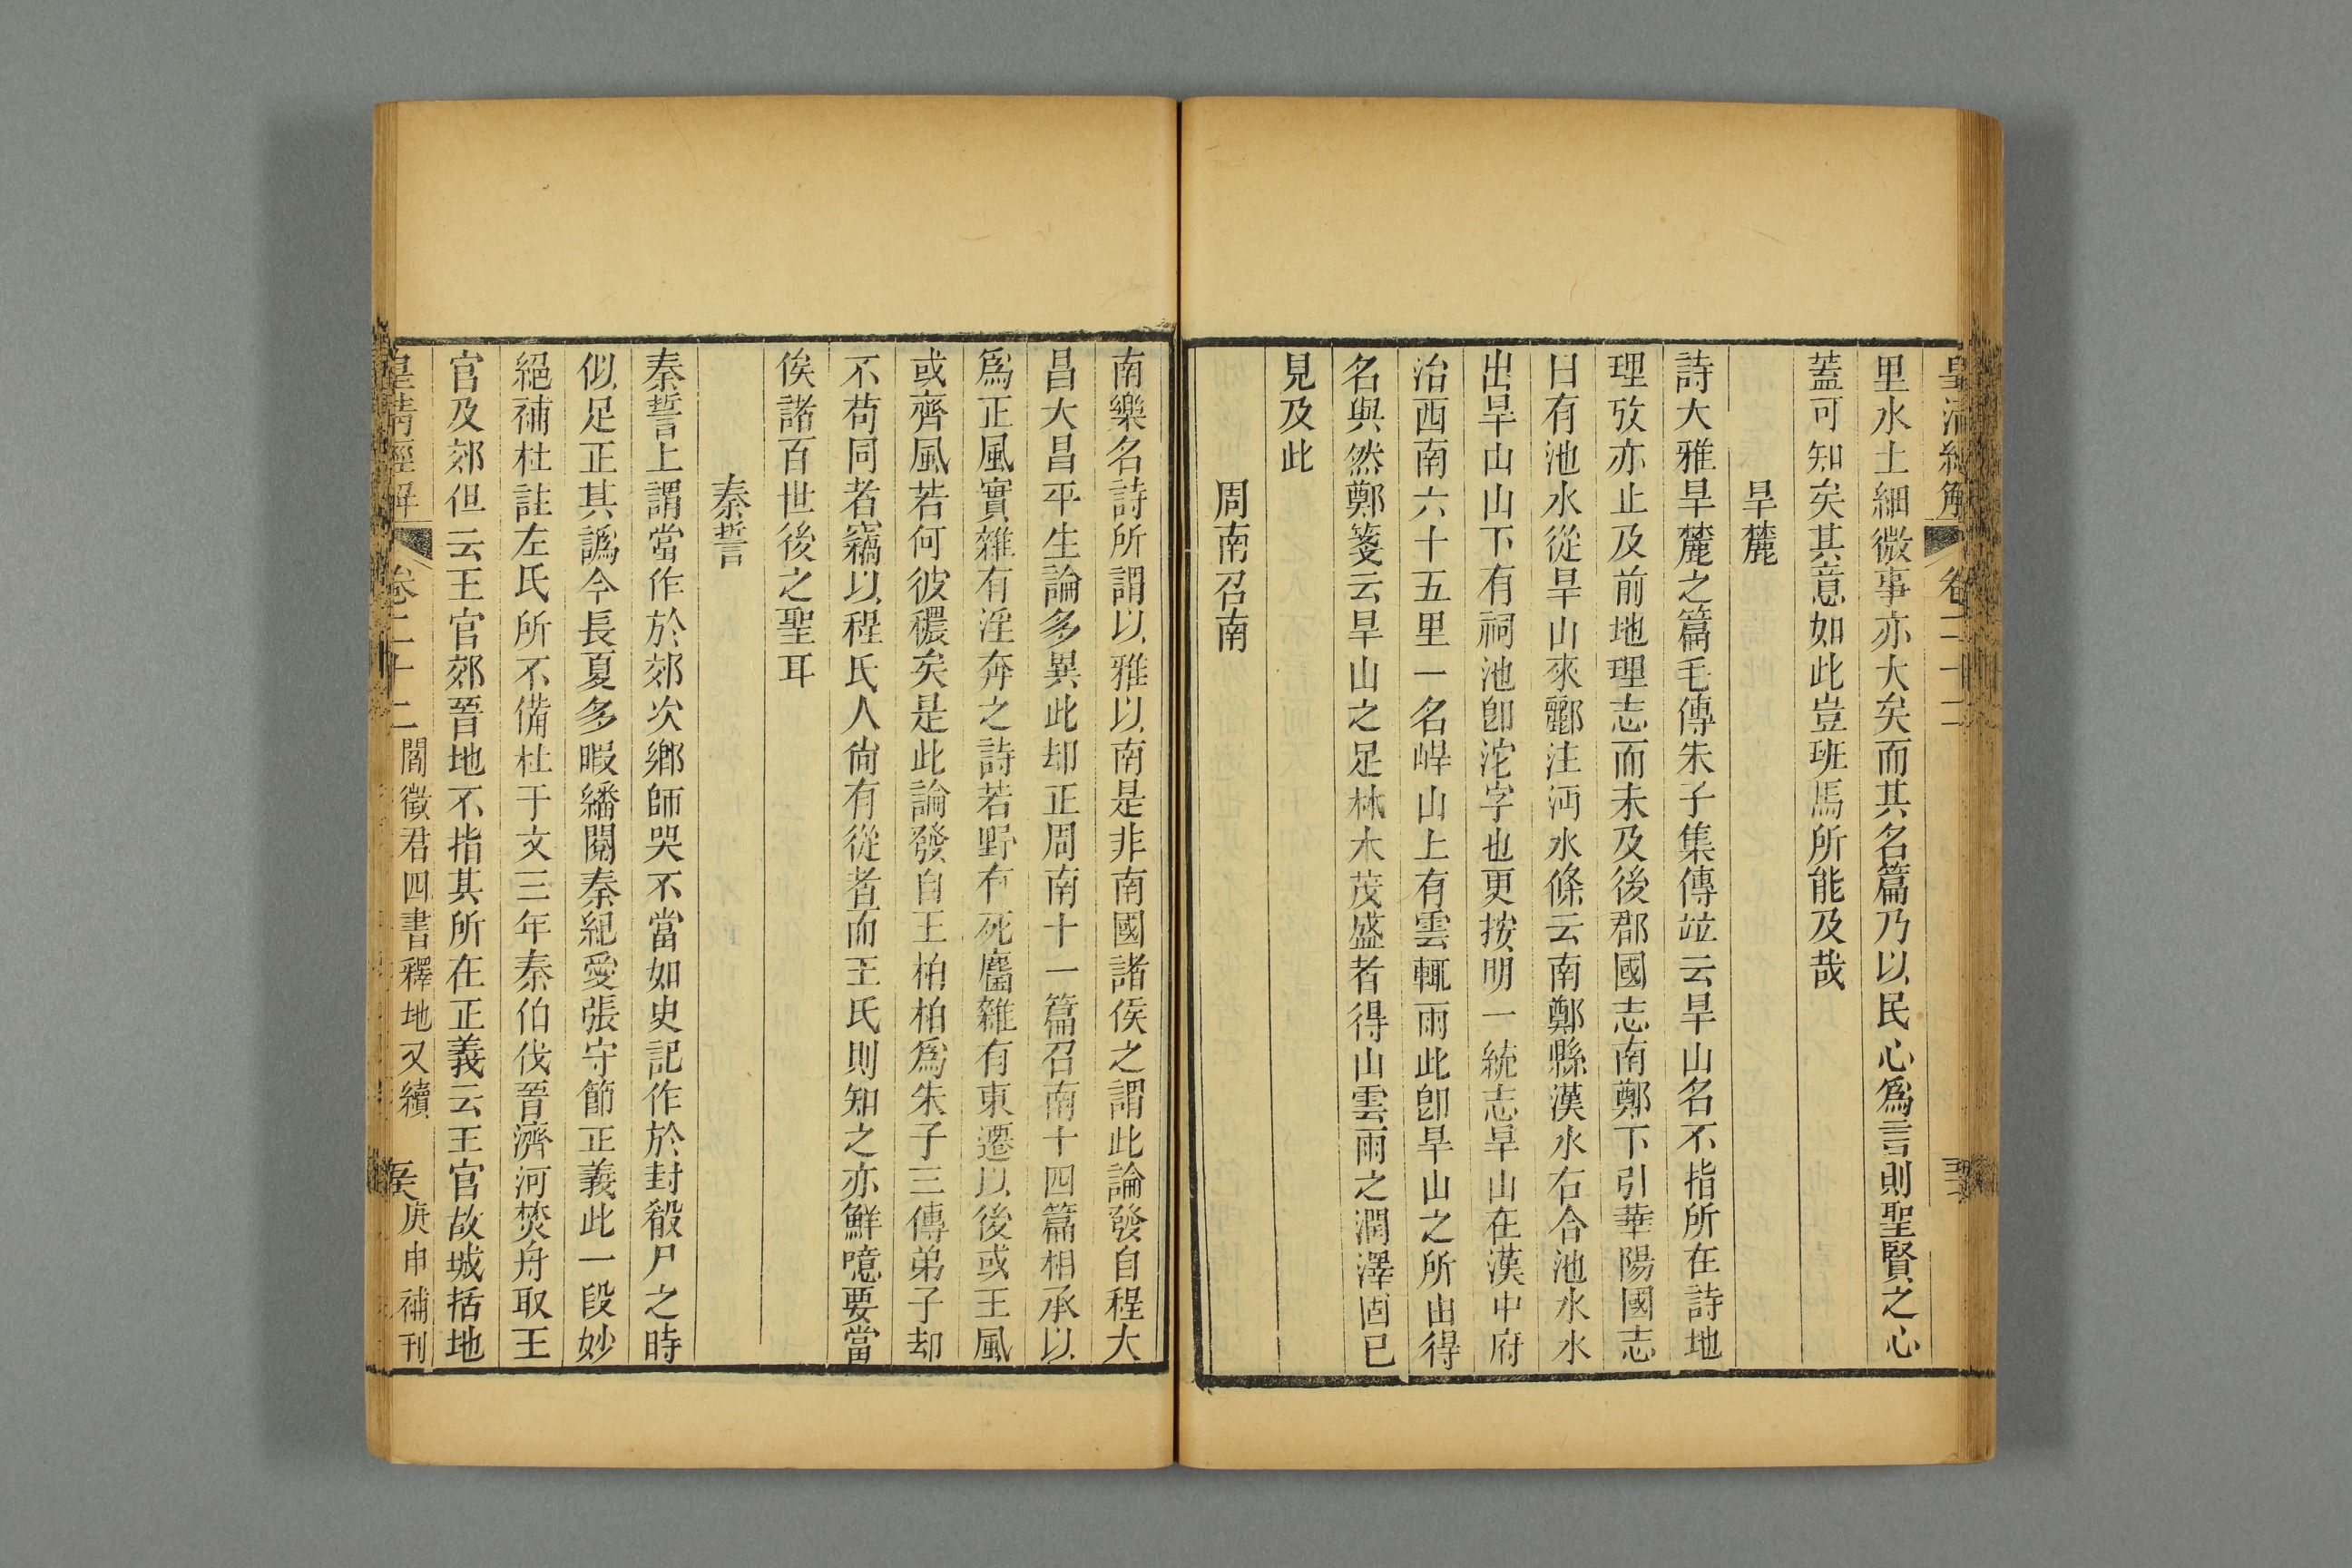 皇清經解 卷二十二
里水土細微事亦大矣而其名篇乃以民心爲言則聖賢之心
蓋可知矣其意如此豈班馬所能及哉
旱麓
詩大雅旱麓之篇毛傳朱子集傳竝云旱山名不指所在詩地
理攷亦止及前地理志而未及後郡國志南鄭下引華陽國志
曰有池水從旱山來酈注沔水條云南鄭縣漢水右合池水水
出旱山山下有祠池卽沱字也更按明一統志旱山在漢中府
治西南六十五里一名㟁山上有雲輒雨此卽旱山之所由得
名與然鄭箋云旱山之足林木茂盛者得山雲雨之潤澤固已
見及此
周南召南
南樂名詩所謂以雅以南是非南國諸侯之謂此論發自程大
昌大昌平生論多異此却正周南十一篇召南十四篇相承以
爲正風實雜有淫奔之詩若野有死麕雜有東遷以後或王風
或齊風若何彼穠矣是此論發自王柏柏爲朱子三傳弟子却
不苟同者竊以程氏人尙有從者而王氏則知之亦鮮噫要當
俟諸百世後之聖耳
秦誓
秦誓上謂當作於郊次鄕師哭不當如史記作於封殽尸之時
似足正其譌今長夏多暇繙閱秦紀愛張守節正義此一段妙
絕補杜註左氏所不備杜于文三年秦伯伐晉濟河焚舟取王
官及郊但云王官郊晉地不指其所在正義云王官故城括地
皇清經解 卷二十二 閻徵君四書釋地又續 庚申補刊